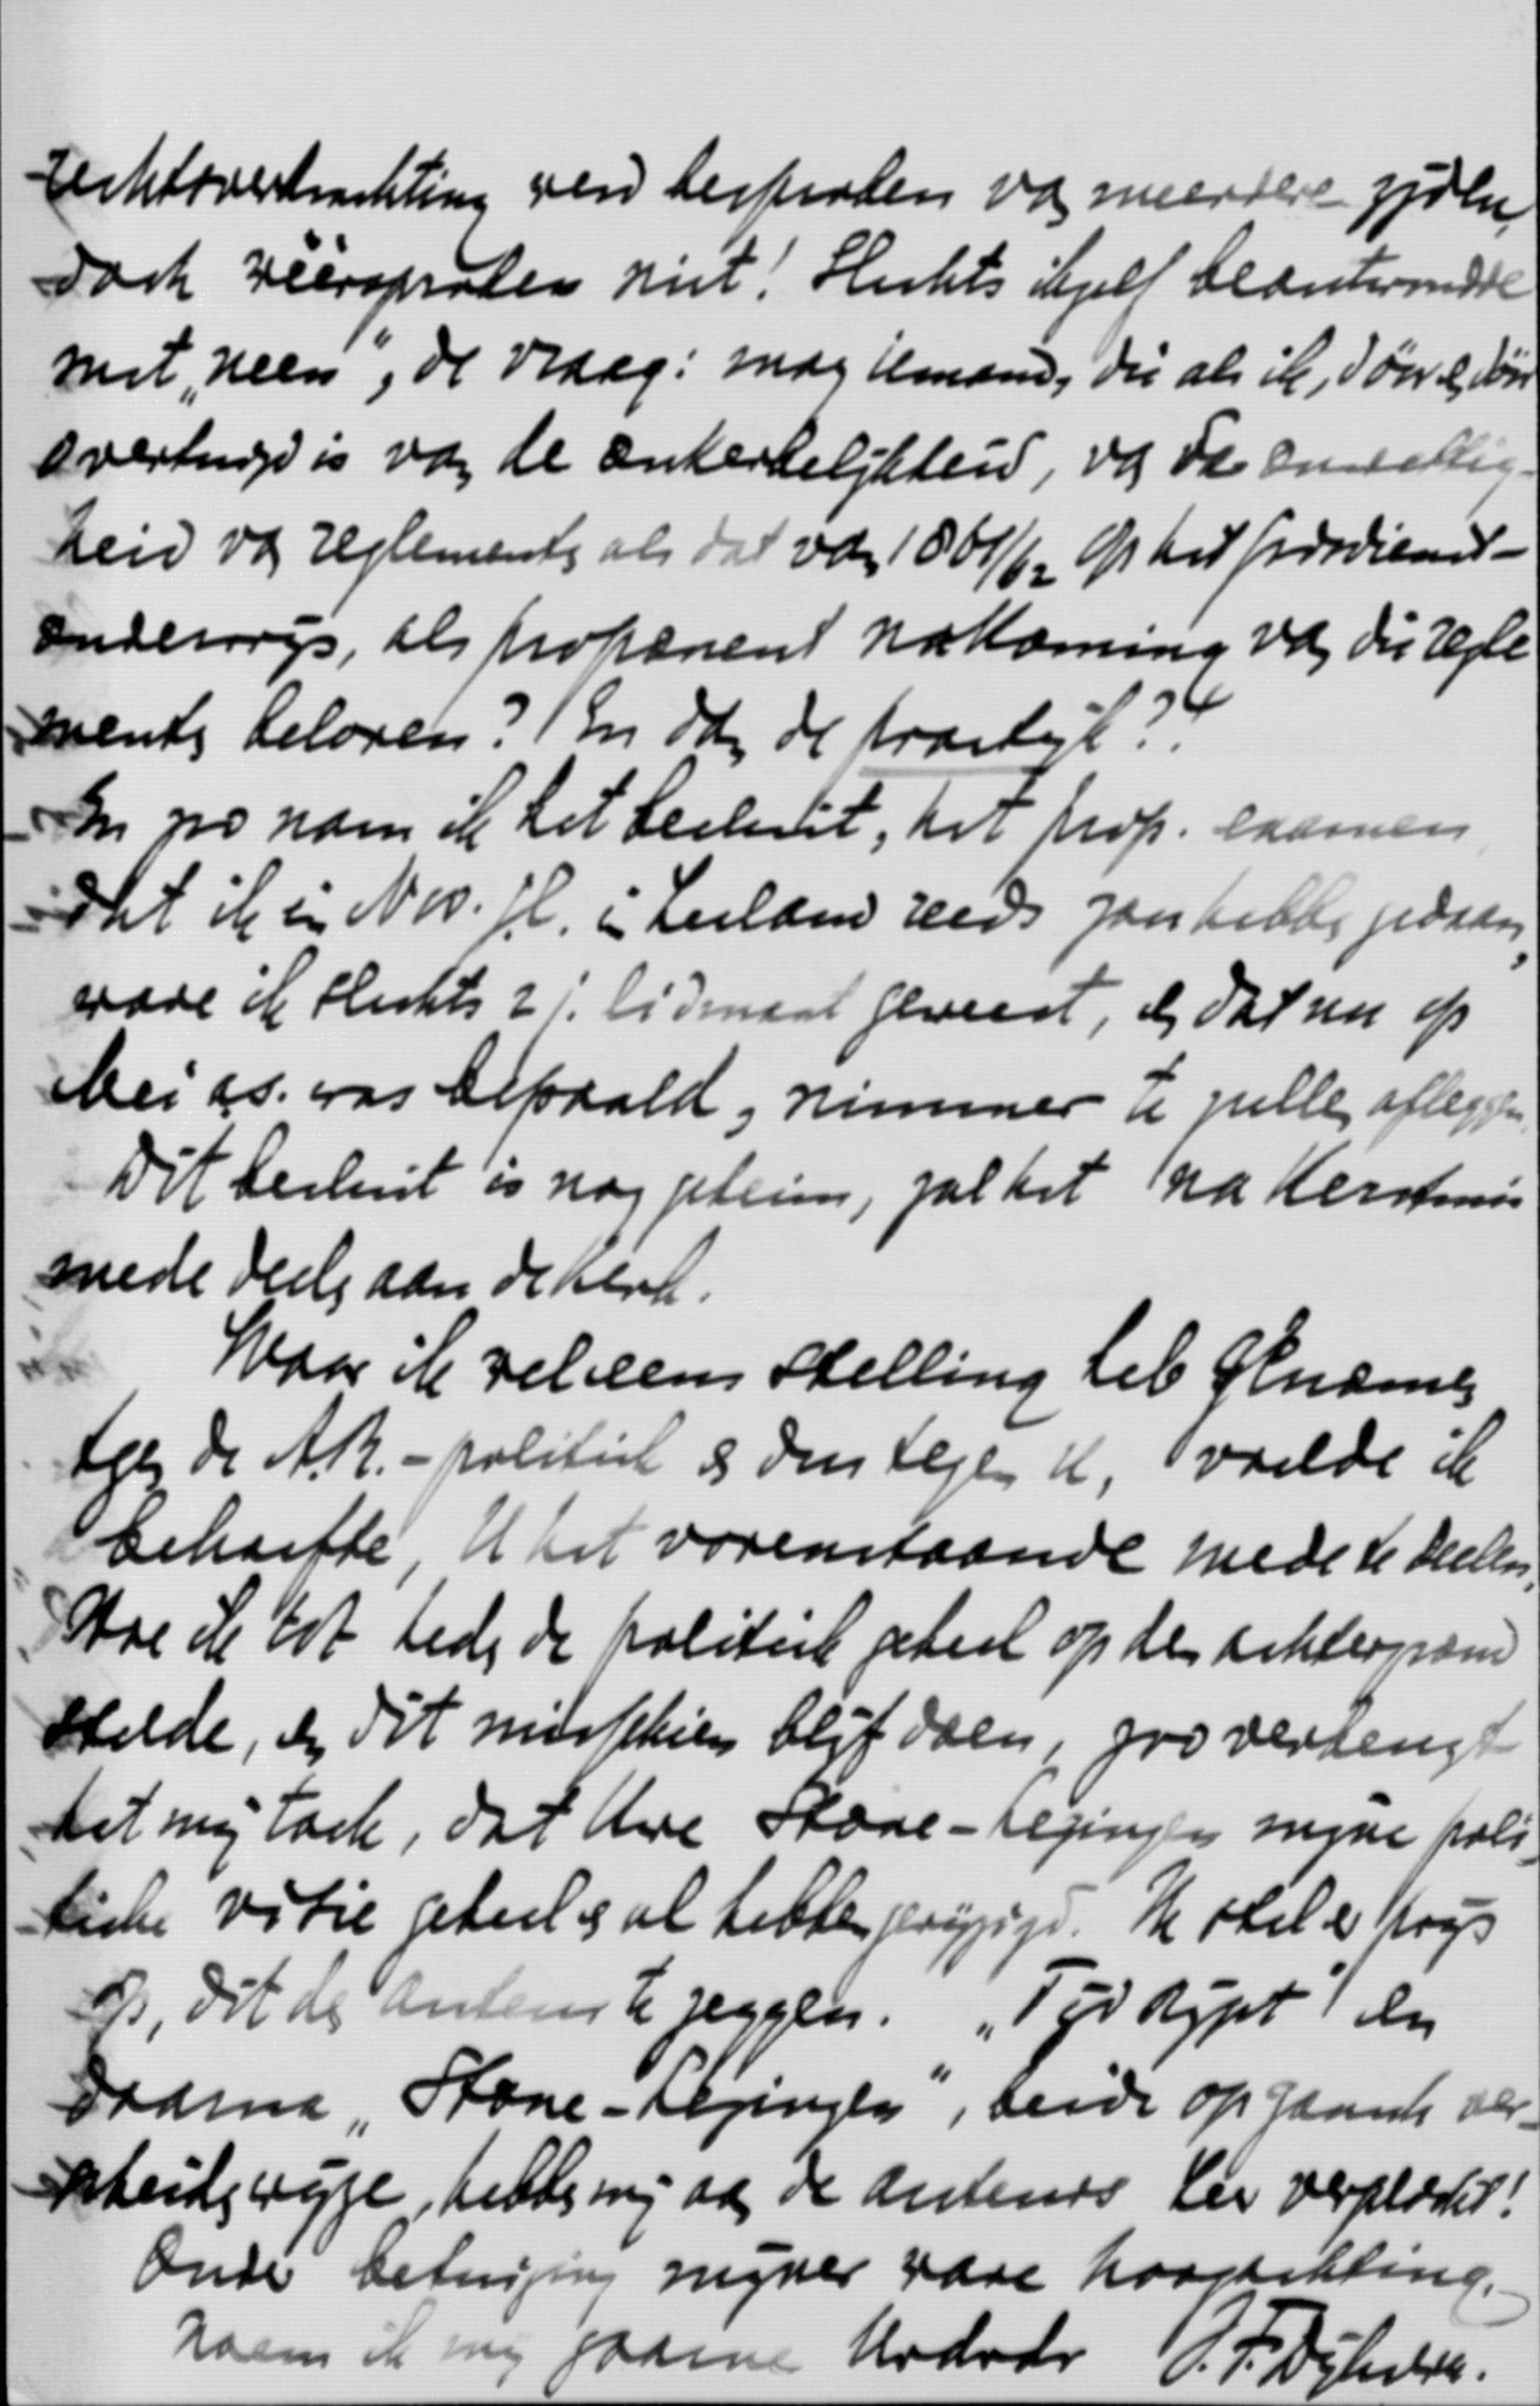 rechtsovertrachting werd besproken van meerdere zijden,
doch weersproken niet! Slechts ikzelf beantwoordde
met „neen", de vraag: mag iemand, die als ik, door en door
overtuigd is van de onkerkelijkheid, van de onwettig-
heid van reglementen als dat van 1861/62 op het godsdienst-
onderwijs, als proponent nakoming van die regle
menten beloven? En dan de practijk??
En zoo nam ik het besluit, het prop. examen
dat ik in Nov. jl. in Zeeland reeds zou hebben gedaan,
ware ik slechts 2 j. lidmaat geweest, en dat nu op
Mei a.s. was bepaald, nimmer te zullen afleggen.
Dit besluit is nog geheim, zal het na Kerstmis
mede deelen aan de kerk.
Waar ik wel eens stelling heb genomen
tegen de A.R.-politiek en dus tegen U, voelde ik
behoefte, U het vorenstaande mede te deelen.
Hoe ik tot heden de politiek geheel op den achtergrond
stelde, en dit misschien blijf doen, zoo verheugt
het mij toch, dat Uwe Stone-lezingen mijne poli
tieke visie geheel en al hebben gewijzigd. Ik stel er prijs
op, dit den auteur te zeggen. „Tijdrijpt" en
daarna „Stone-lezingen", beide op gansch ver-
scheiden wijze, hebben mij aan de auteurs zeer verplicht!
Onder betuiging mijner ware hoogachting,
noem ik mij gaarne Uwdwdr J. F. Dijkstra.